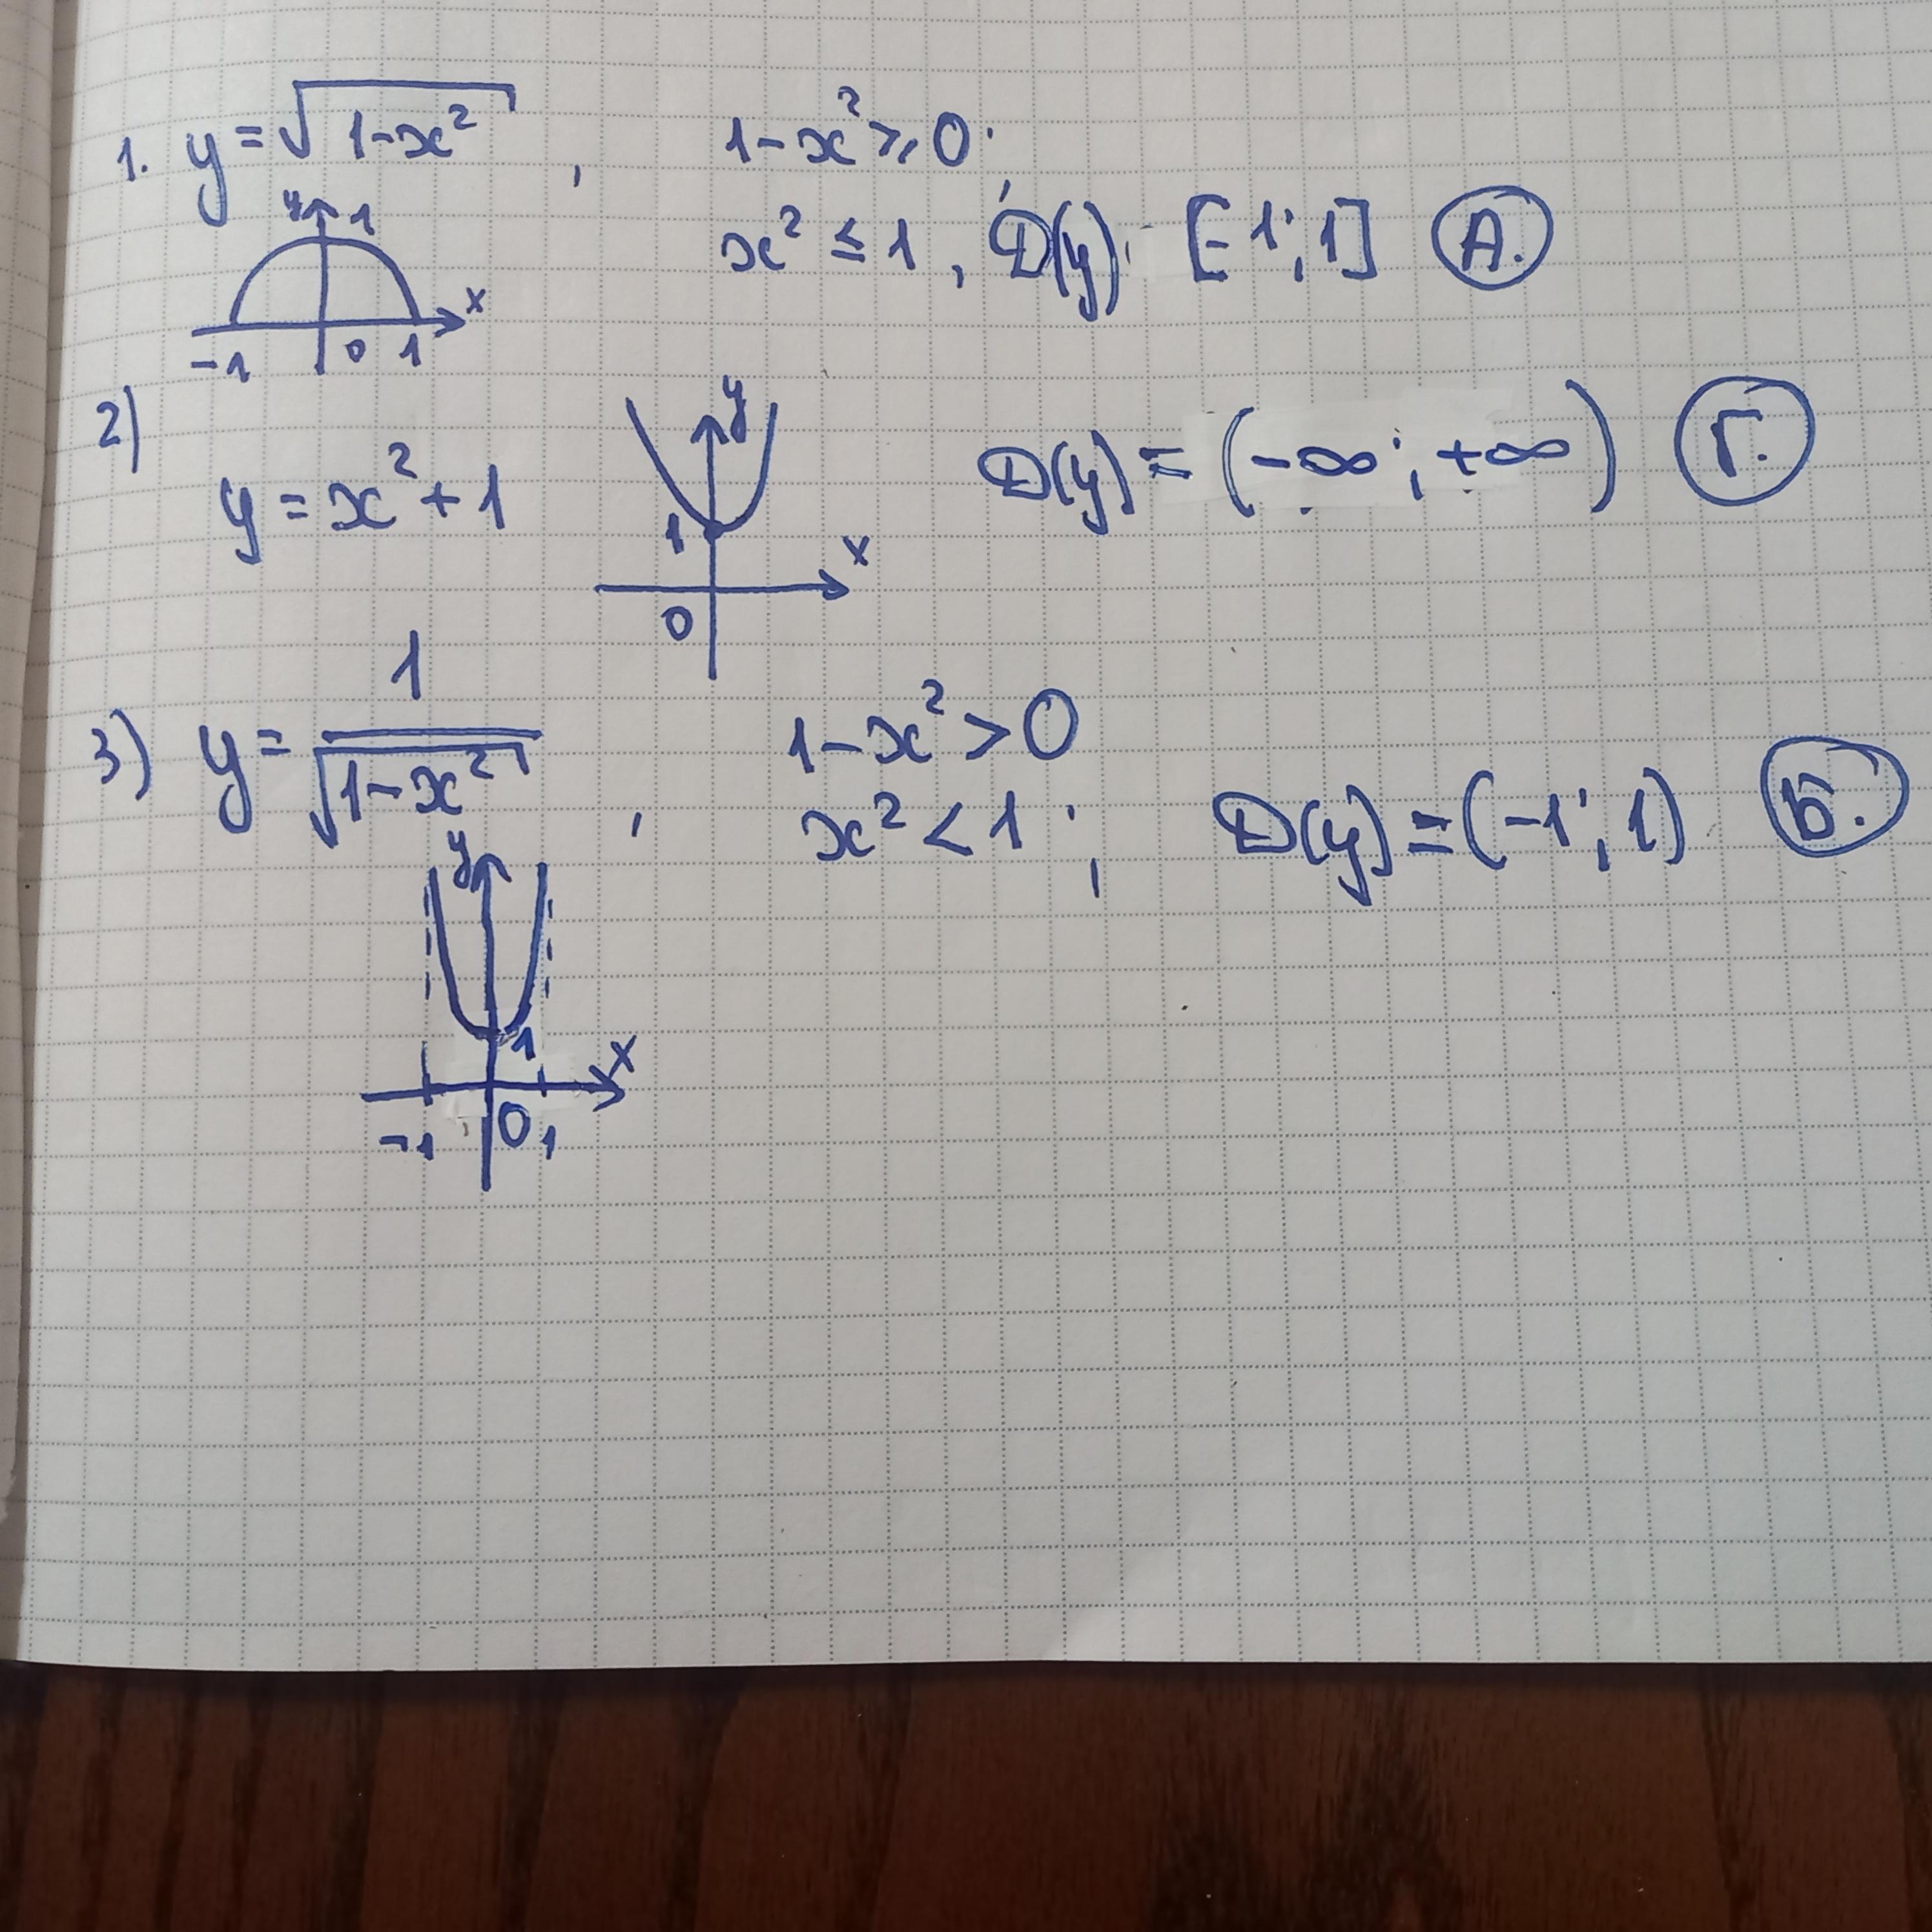 1. y = √(1-x²) , 1-x² ⩾ 0
y 1
x² ≤ 1 , D(y) [-1; 1] А.
x
-1 0 1
2)
y
y = x² + 1 D(y) = (-∞; +∞) Г.
1
x
0
3) y = 1/√(1-x²) , 1-x² > 0
x² < 1 ; D(y) = (-1; 1) Б.
y
1
x
-1 0 1